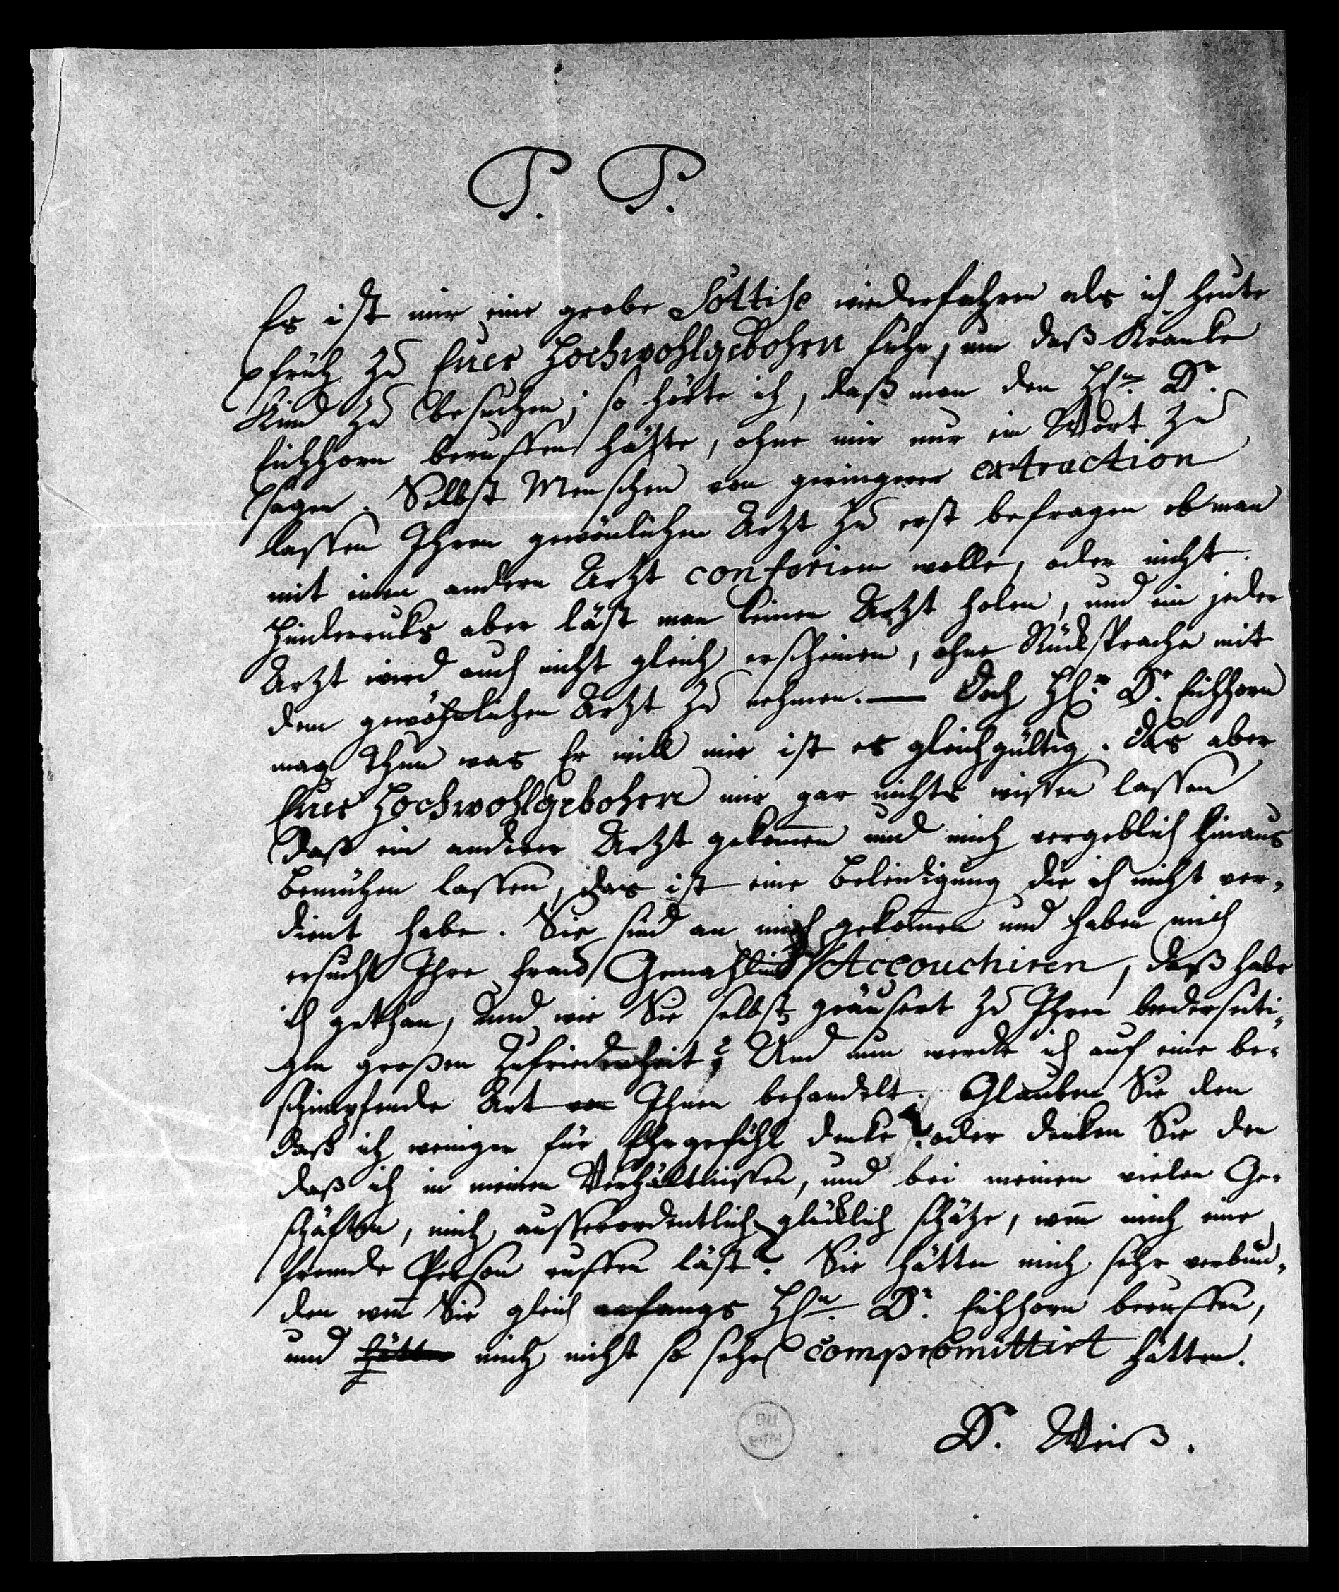 P. P.
Es ist mir eine grobe Sottise wiederfahren als ich heute
früh zu Euer Hochwohlgebohrn fuhr, um daß Kranke
Kind zu besuchen; so hörte ich, daß man den Hℓn. Dr.
Eichhorn beruffen hätte, ohne mir nur ein Wort zu
sagen. Selbst Menschen von geringerer extraction
lassen Ihren gewönlichen Arzt zu erst befragen ob man
mit einen andern Arzt conferiren wolle, oder nicht.
Hinterruks aber läst man keinen Arzt holen, und ein jeder
Arzt wird auch nicht gleich erscheinen, ohne Rücksprache mit
dem gewöhnlichen Arzt zu nehmen. — Doch Hℓr. Dr. Eichhorn
mag thun was Er will mir ist es gleichgültig. Das aber
Euer Hochwohlgebohrn mir gar nichts wissen lassen
daß ein anderer Arzt gekom̄en und mich vergeblich hinaus
bemühen lassen, das ist eine Beleidigung die ich nicht ver-
dient habe. Sie sind an mich gekom̄en und haben mich
ersucht Ihre Frau Gemahlin zu Accouchiren, daß habe
ich gethan, und wie Sie selbst geäusert zu Ihren beederseiti-
gen großen Zufriedenheit; Und nun werde ich auf eine be-
schimpfende Art von Ihnen behandelt. Glauben Sie den
daß ich weniger für Ehrgefühl denke? oder denken Sie den
daß ich in meinen Verhältnissen, und bei meinen vielen Ge-
schäften, mich ausserordentlich glücklich schätze, wen̄ mich eine
fremde Person ruffen läst? Sie hätten mich sehr verbun-
den wen̄ Sie gleich anfangs Hℓn. Dr. Eichhorn beruffen,
und hätten mich nicht so sehr compromittirt hätten.
D. Weiß.